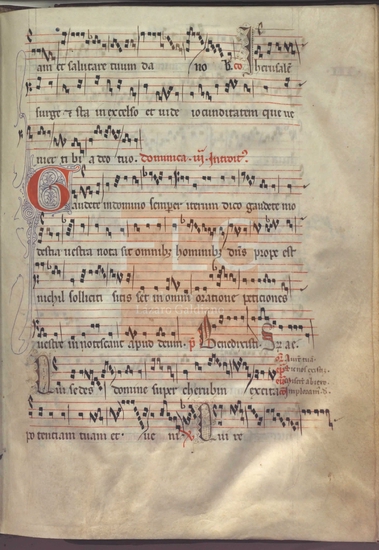 am et salutare tuum da no bis. Co Iherusalem
surge et sta in excelso et vide iocunditatem que ve
niet ti bi a deo tuo. Dominica .iij. Introit9.
Gaudete in domino semper iterum dico gaudete mo
destia uestra nota sit omnibz hominibz dns prope est
nichil solliciti sitis set in omni oratione peticiones
uestre innotescant apud deum. ps Benedixisti Gr ae.
Qui sedes domine super cherubim excita
po tenciam tuam et ue ni Qui re